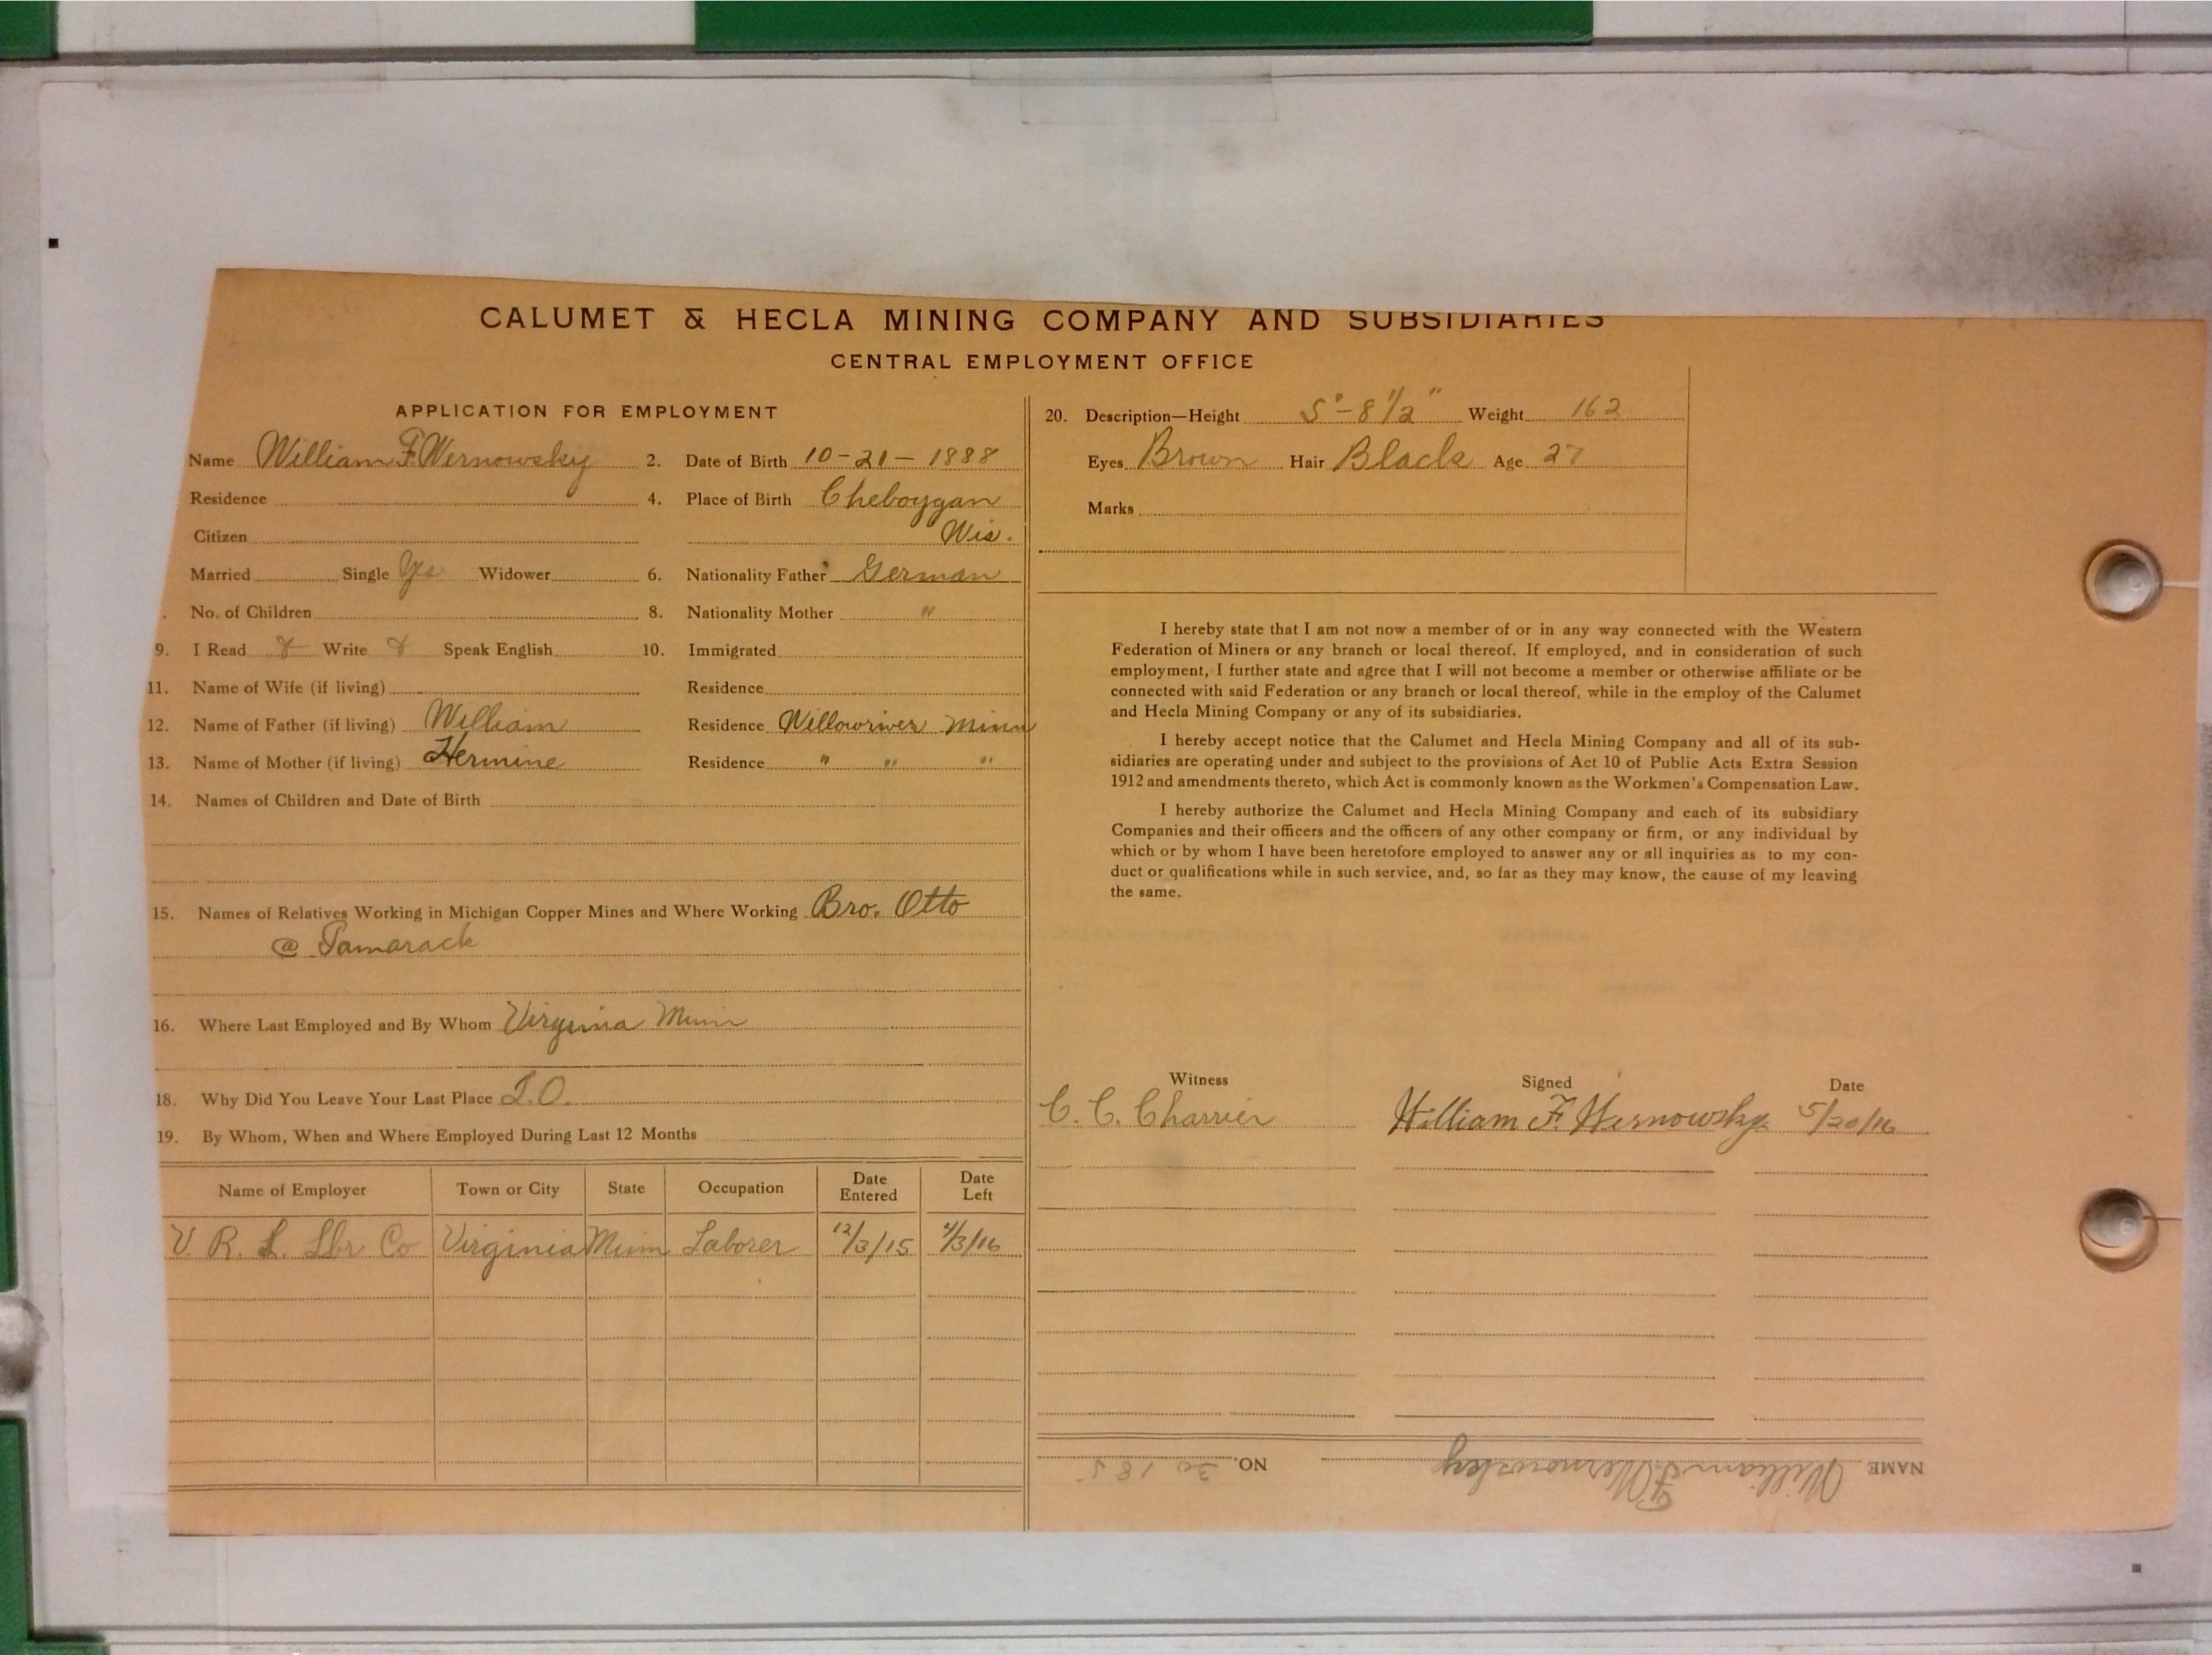 CALUMET & HECLA MINING COMPANY AND SUBSIDIARIES
CENTRAL EMPLOYMENT OFFICE
APPLICATION FOR EMPLOYMENT
Name William F. Wernowsky 2. Date of Birth 10-21-1888
Residence 4. Place of Birth Cheboygan
Citizen Wis.
Married Single Yes Widower 6. Nationality Father German
No. of Children 8. Nationality Mother "
9. I Read & Write & Speak English 10. Immigrated
11. Name of Wife (if living) Residence
12. Name of Father (if living) William Residence Willowriver Minn
13. Name of Mother (if living) Hermine Residence " " "
14. Names of Children and Date of Birth
15. Names of Relatives Working in Michigan Copper Mines and Where Working Bro. Otto
@ Tamarack
16. Where Last Employed and By Whom Virginia Minn
18. Why Did You Leave Your Last Place I.O.
19. By Whom, When and Where Employed During Last 12 Months
Name of Employer Town or City State Occupation Date Entered Date Left
V. R. L. Lbr Co Virginia Minn Laborer 12/3/15 4/3/16
20. Description—Height 5'-8 1/2" Weight 162
Eyes Brown Hair Black Age 27
Marks
I hereby state that I am not now a member of or in any way connected with the Western
Federation of Miners or any branch or local thereof. If employed, and in consideration of such
employment, I further state and agree that I will not become a member or otherwise affiliate or be
connected with said Federation or any branch or local thereof, while in the employ of the Calumet
and Hecla Mining Company or any of its subsidiaries.
I hereby accept notice that the Calumet and Hecla Mining Company and all of its sub-
sidiaries are operating under and subject to the provisions of Act 10 of Public Acts Extra Session
1912 and amendments thereto, which Act is commonly known as the Workmen's Compensation Law.
I hereby authorize the Calumet and Hecla Mining Company and each of its subsidiary
Companies and their officers and the officers of any other company or firm, or any individual by
which or by whom I have been heretofore employed to answer any or all inquiries as to my con-
duct or qualifications while in such service, and, so far as they may know, the cause of my leaving
the same.
Witness Signed Date
C. C. Charrier William F. Wernowsky 5/20/16
NAME William F. Wernowsky NO. 30185